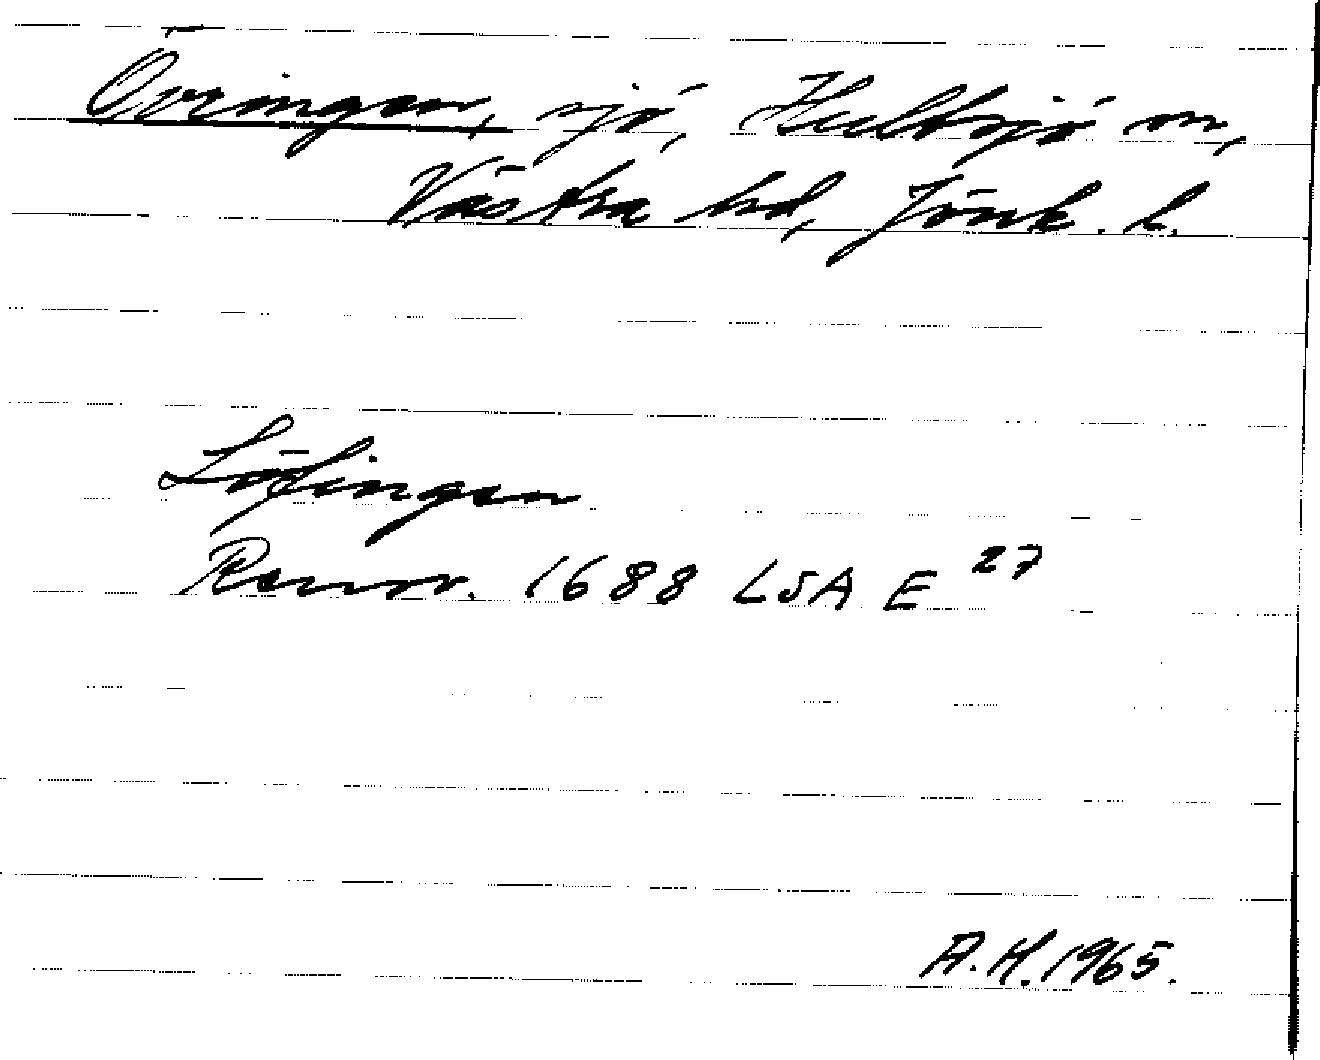 Övringen, sjö, Hultsjö sn,
Västra hd, Jönk. l.
Löfingen
Rannr. 1688 LSA E 27
A.H. 1965.